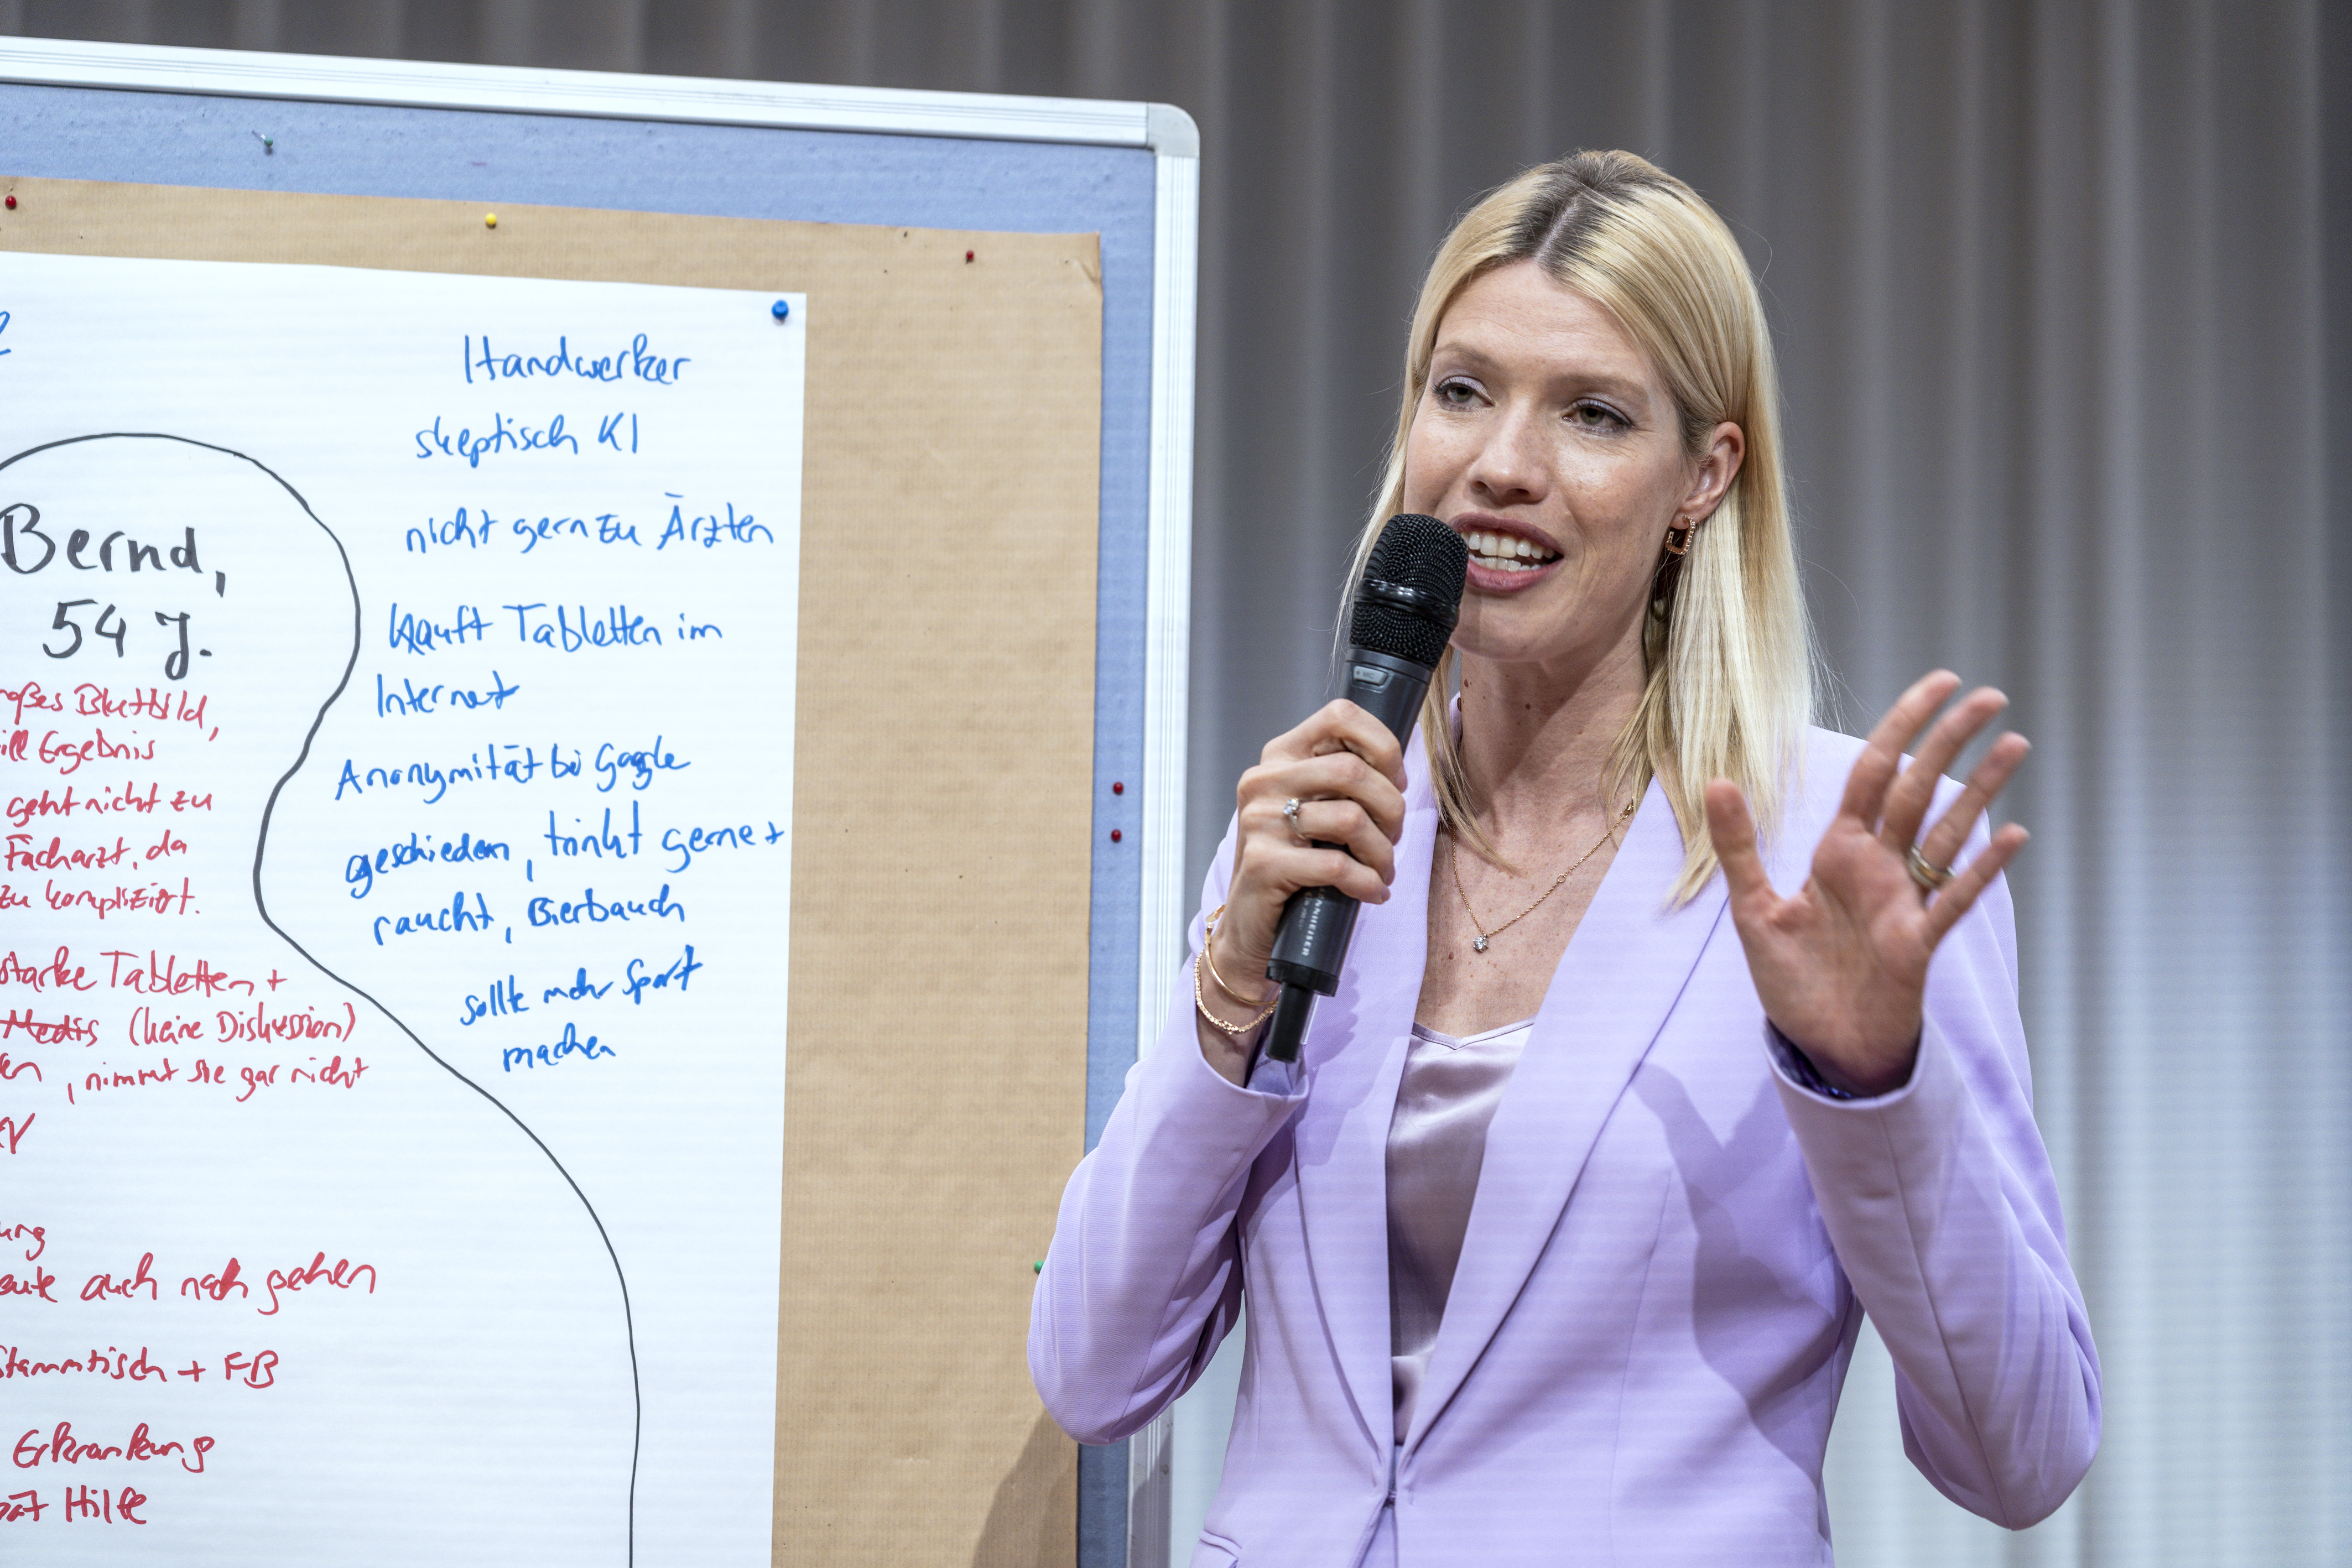 Handwerker
skeptisch KI
nicht gern zu Ärzten
kauft Tabletten im
Internet
Anonymität bei Google
geschieden, trinkt gerne +
raucht, Bierbauch
sollte mehr Sport
machen
Bernd,
54 J.
roßes Blutbild,
ill Ergebnis
geht nicht zu
Facharzt, da
zu kompliziert.
starke Tabletten +
Medis (keine Diskussion)
en, nimmt sie gar nicht
ung
eute auch noch gehen
Stammtisch + FB
Erkrankung
Hilfe
NNHEISER